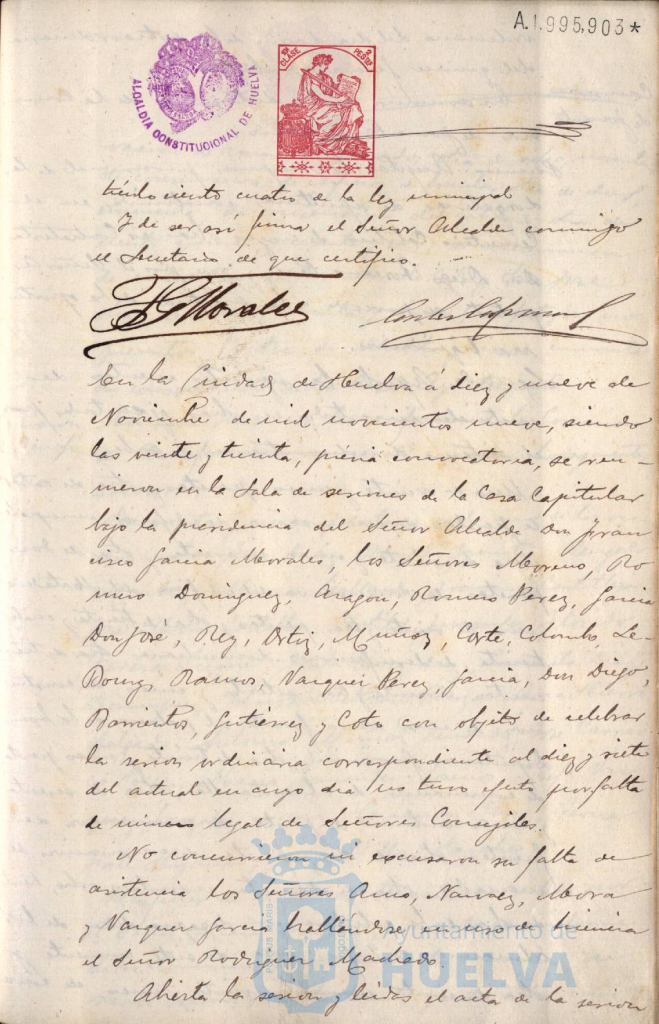 A.1.995,903*
ALCALDIA CONSTITUCIONAL DE HUELVA
9ª CLASE 2 PESTAS
tículo ciento cuatro de la ley municipal
Y de ser así firma el Señor Alcalde conmigo
el Secretario de que certifico.
FG Morales
En la Ciudad de Huelva á diez y nueve de
Noviembre de mil novecientos nueve, siendo
las veinte y treinta, prévia convocatoria, se reu-
nieron en la Sala de sesiones de la Casa Capitular
bajo la presidencia del Señor Alcalde Don Fran
cisco García Morales, los Señores Moreno, Ro
mero Dominguez, Aragon, Romero Perez, García
Don José, Rey, Ortiz, Muñoz, Corte, Colombo, Le-
Bourg Ramos, Vazquez Perez, García, Don Diego,
Barrientos, Gutiérrez y Coto con objeto de celebrar
la sesion ordinaria correspondiente al diez y siete
del actual en cuyo dia no tuvo efecto por falta
de número legal de Señores Concejales.
No concurrieron ni excusaron su falta de
asistencia los Señores Amo, Narvaez, Mora
y Vazquez García hallandose en uso de licencia
el Señor Rodriguez Machado.
Abierta la sesion y leida el acta de la sesion
Ayuntamiento de
HUELVA